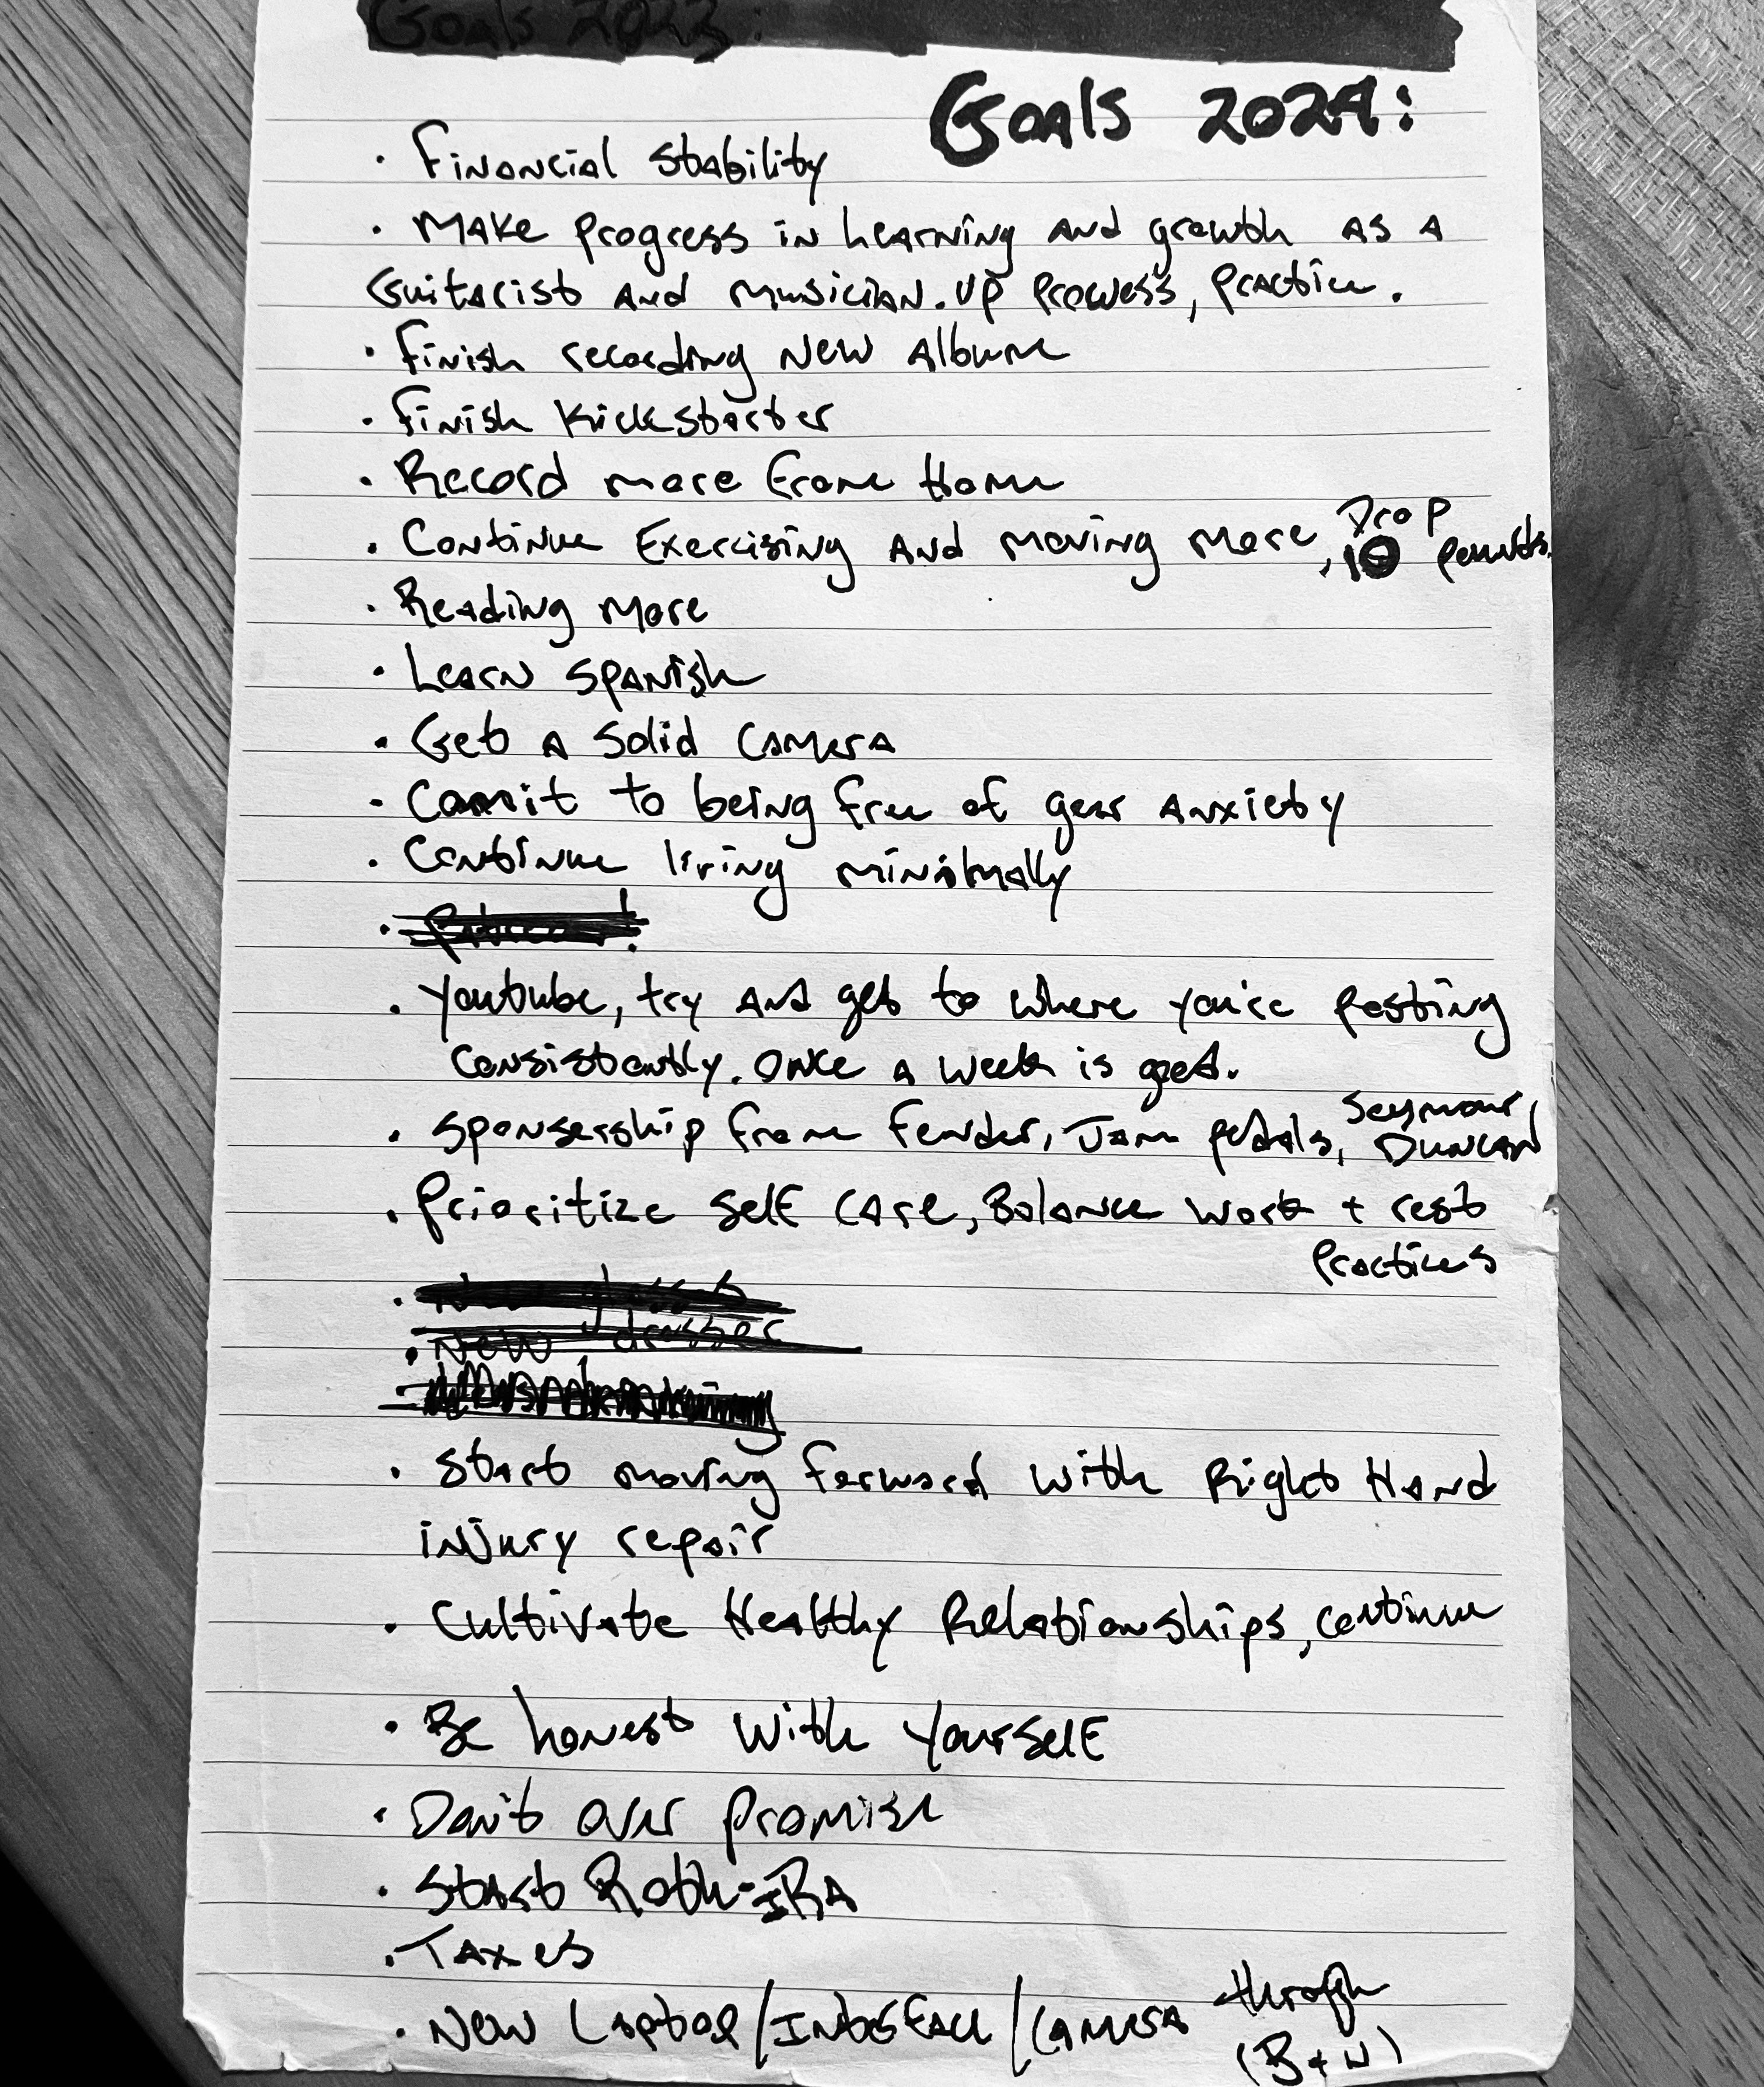 Goals 2023:
Goals 2024:
· Financial Stability
· Make progress in learning and growth as a
Guitarist and musician. Up Prowess, Practice.
· Finish recording New Album
· Finish Kickstarter
· Record more from Home
· Continue Exercising and moving more, Drop
10 pounds.
· Reading More
· Learn Spanish
· Get a Solid Camera
· Commit to being free of gear Anxiety
· Continue living minimally
· Youtube, try and get to where you're posting
Consistently. Once a week is good.
· Sponsership from Fender, Jam pedals, Seymour
Duncan
· Prioritize Self Care, Balance work + rest
Practices
· New dresser
· Start moving forward with Right Hand
injury repair
· Cultivate Healthy Relationships, continue
· Be honest with yourself
· Don't over promise
· Start Roth-IRA
· Taxes
· New Laptop/Interface/Camera through
(B+H)